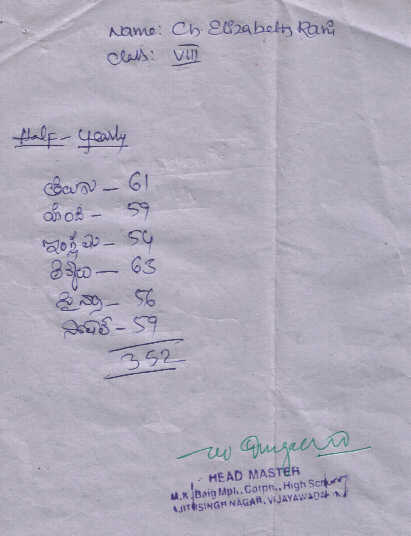 Name: Ch Elizabeth Rani
Class: VIII
Half - Yearly
తెలుగు - 61
హిందీ - 59
ఇంగ్లీషు - 54
లెక్కలు - 63
సైన్సు - 56
సోషల్ - 59
352
HEAD MASTER
M.K. Baig Mpl., Corpn., High School
AJITSINGH NAGAR, VIJAYAWADA